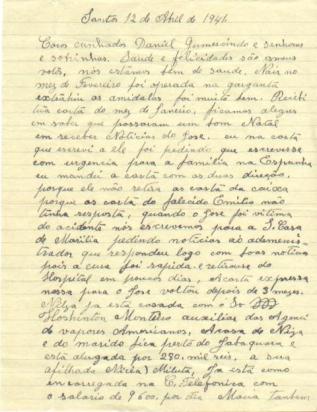 Santos 12 de Abril de 1946
Caros cunhados Daniel Gumescindo e Senhoras
e sobrinhos. Saude e felicidades são nossos
votos, nós estamos bem de saude. Nair no
mez de Fevereiro foi operada na garganta
extrahiu as amidalas foi muito bem. Recebi
tua carta do mez de Janeiro, ficamos alegres
em saber que passaram um bom Natal
em receber Noticias do José. eu na carta
que escrevi a elle foi pedindo que escrevesse
com urgencia para a familia na Espanha
eu mandei a carta com as duas direção,
porque elle não retira as carta da caixa
porque as carta do falecido Emilio não
tinha resposta, quando o José foi vitima
do acidente nós escrevemos para a S. Casa
de Marilia pedindo noticias ao adeministrador
que respondeu logo com boas noticias
pois a cura foi rapida. e retirou-se do
Hospital em poucos dias, A carta expressa
nossa para o José voltou depois de 3 mezes.
Nilza ja está casada com o Sr
Washinton Monteiro auxiliar das Agencia
de vapores Americanos, A casa de Nilza
e do marido fica perto do Jabaquara e
está alugada por 280, mil reis, a sua
afilhada Nilza) Miluta, Ja está como
encarregada na C. Telefonica com
o salario de 9600, por dia Maria tambem